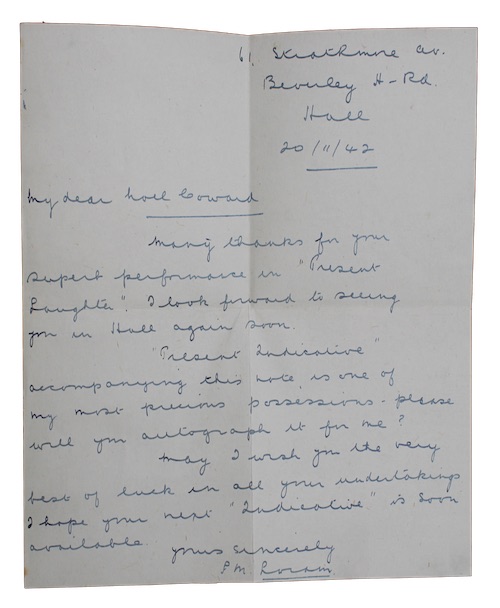 61, Strathmore Av.
Beverley H-Rd.
Hull
20/11/42
My dear Noel Coward
Many thanks for your
superb performance in "Present
Laughter". I look forward to seeing
you in Hull again soon.
"Present Indicative"
accompanying this note, is one of
my most precious possessions - please
will you autograph it for me?
May I wish you the very
best of luck in all your undertakings
I hope your next "Indicative" is soon
available.
Yours sincerely
P M